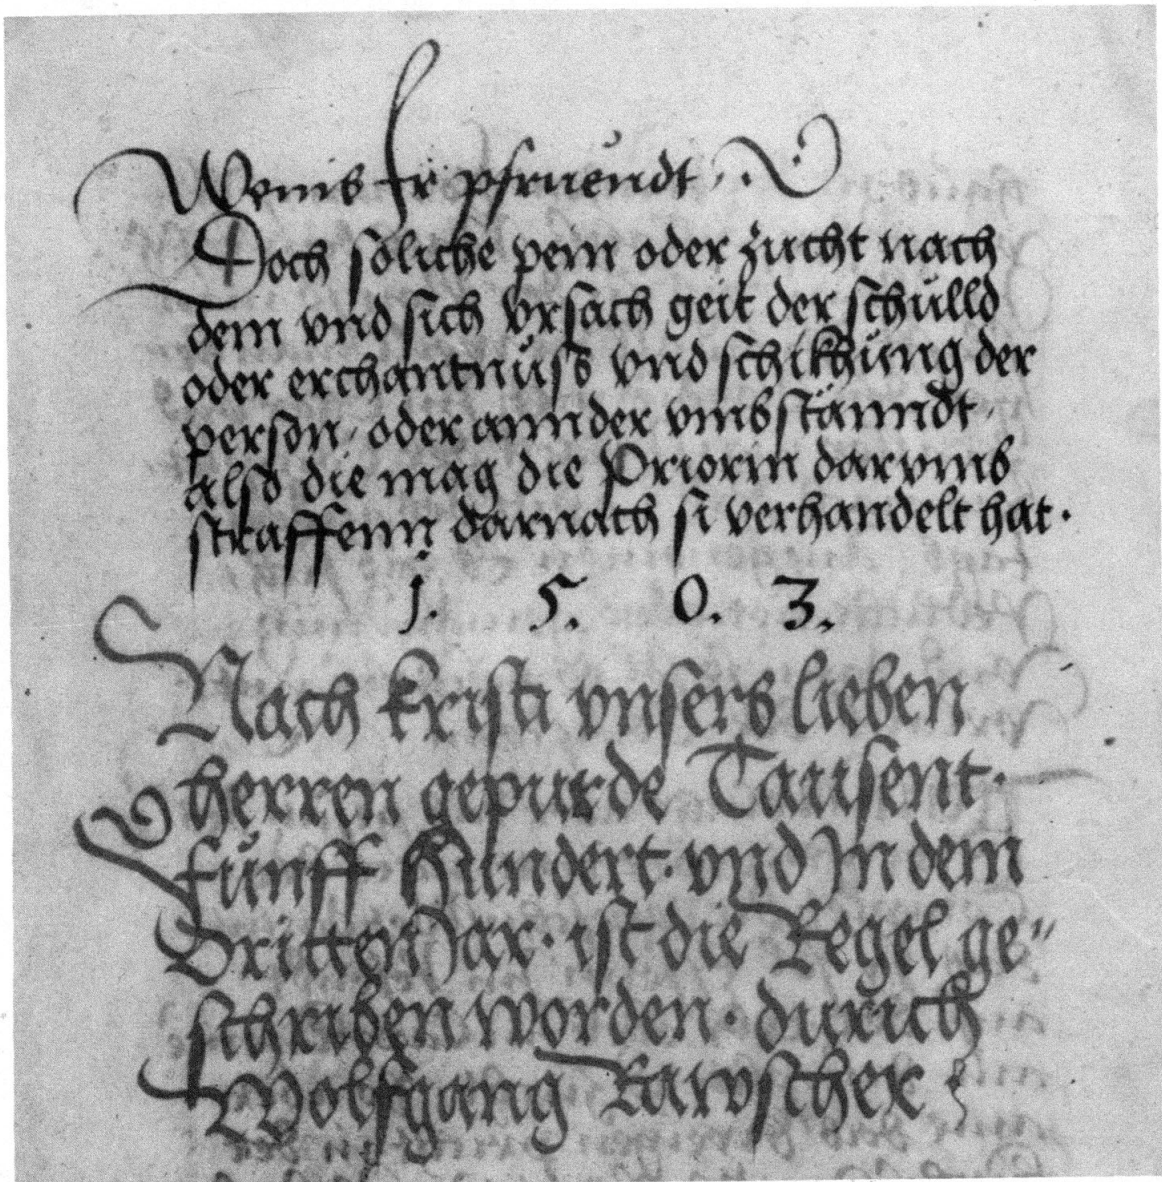 Wenis Ir pfruendt
Doch soliche pein oder zucht nach
dem vnd sich vrsach geit der schulld
oder erchantnuss vnd schikhung der
person, oder annder vmbstänndt,
also die mag die Priorin darvmb
straffenn darnach si verhandelt hat.
1. 5. 0. 3.
Nach kristi vnsers lieben
herren gepurde Tausent.
funff Hundert. vnd In dem
Dritten Jar. ist die Regel ge"
schriben worden. durich
Wolfgang Rawscher